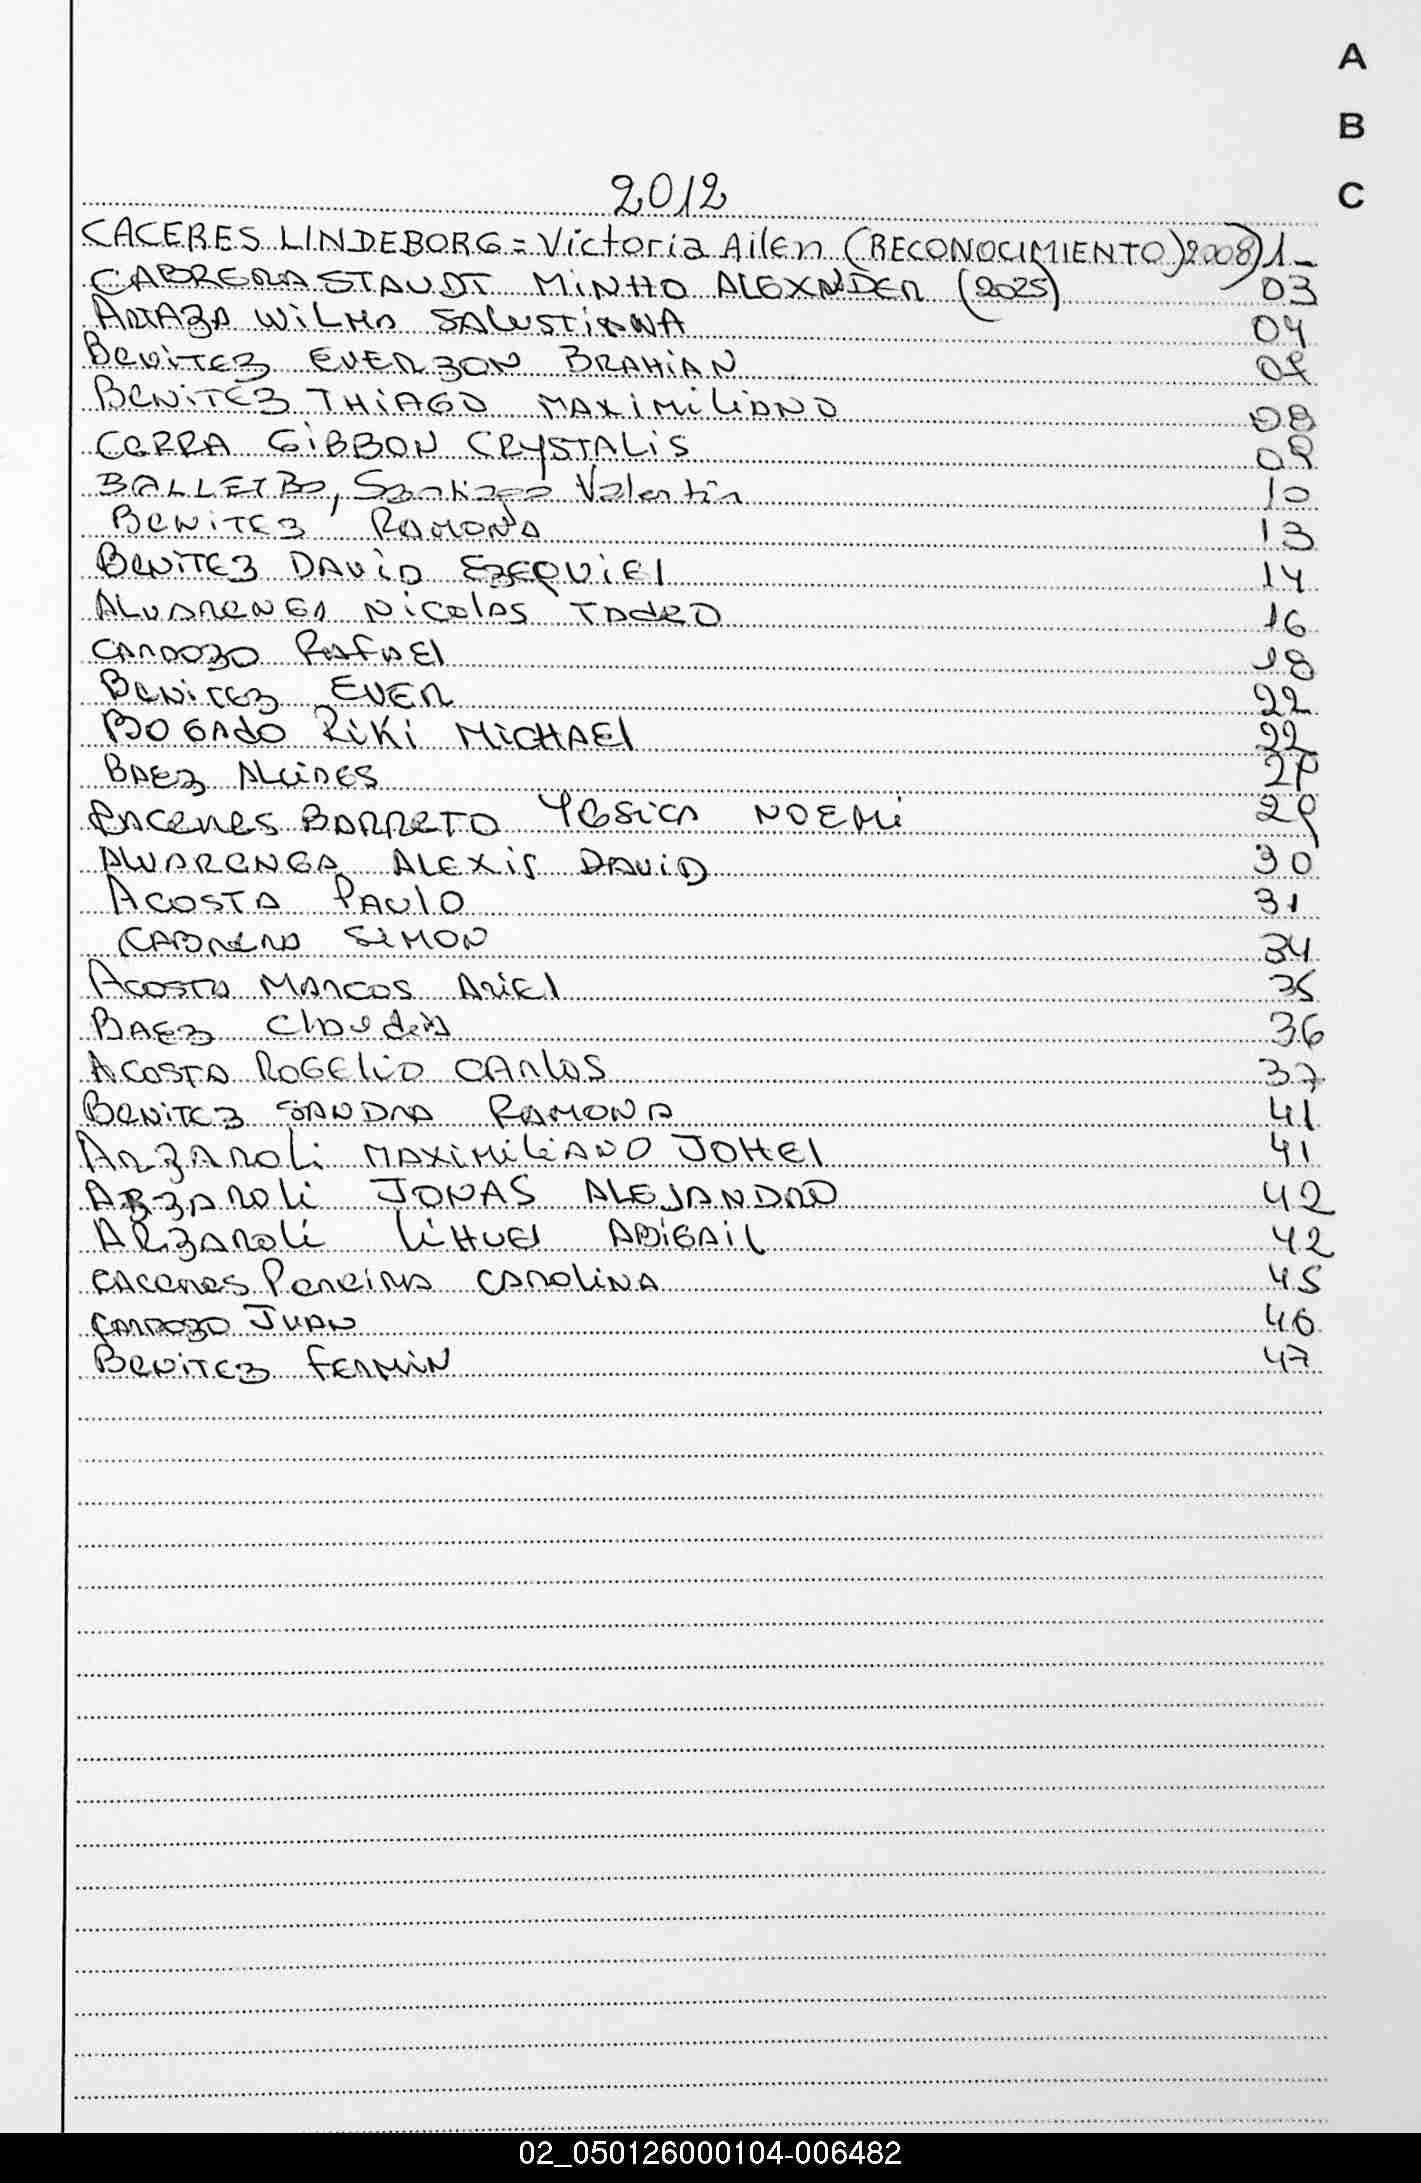 A
B
C
2012
CACERES LINDEBORG = Victoria Ailen (RECONOCIMIENTO) 2008) 1-
CABRERA STAUDT MINHO ALEXNDER (2025) 03
ARTAZA WILMA SALUSTIANA 04
BENITEZ EVERZON BRAHIAN 07
BENITEZ THIAGO MAXIMILIANO 08
CERRA GIBBON CRYSTALIS 09
BALLETBO, Santiago Valentin 10
BENITEZ RAMONA 13
BENITEZ DAVID EZEQUIEl 14
ALVARENGA NICOlAS TAdEO 16
CARDOZO RAFAEl 18
BENITEZ EVER 22
BOGAdO RIKI MICHAEl 22
BAEZ ALCIDES 29
CACERES BARRETO YESICA NOEMI 29
ALVARENGA ALEXIS DAVID 30
ACOSTA PAUlO 31
CABRERA SIMON 34
ACOSTA MARCOS ARIEl 35
BAEZ Claudia 36
ACOSTA ROGElIO CARlOS 37
BENITEZ SANDRA RAMONA 41
ARZAROLI MAXIMILIANO JOHEl 41
ARZAROLI JONAS ALEJANDRO 42
ARZAROLI LIHUEl ABIGAIL 42
CACERES PEREIRA CAROLINA 45
CARDOZO JUAN 46
BENITEZ FERMIN 47
02_050126000104-006482